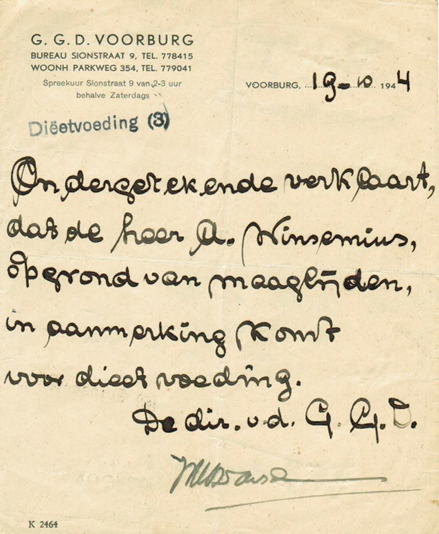 G. G. D. VOORBURG
BUREAU SIONSTRAAT 9, TEL. 778415
WOONH. PARKWEG 354, TEL. 779041
Spreekuur Sionstraat 9 van 2-3 uur
behalve Zaterdags
VOORBURG, 19-10 1944
Diëetvoeding (3)
Ondergetekende verklaart,
dat de heer A. Winsemius,
op grond van maaglijden,
in aanmerking komt
voor dieet voeding.
De dir. v.d. G. G. D.
K 2464